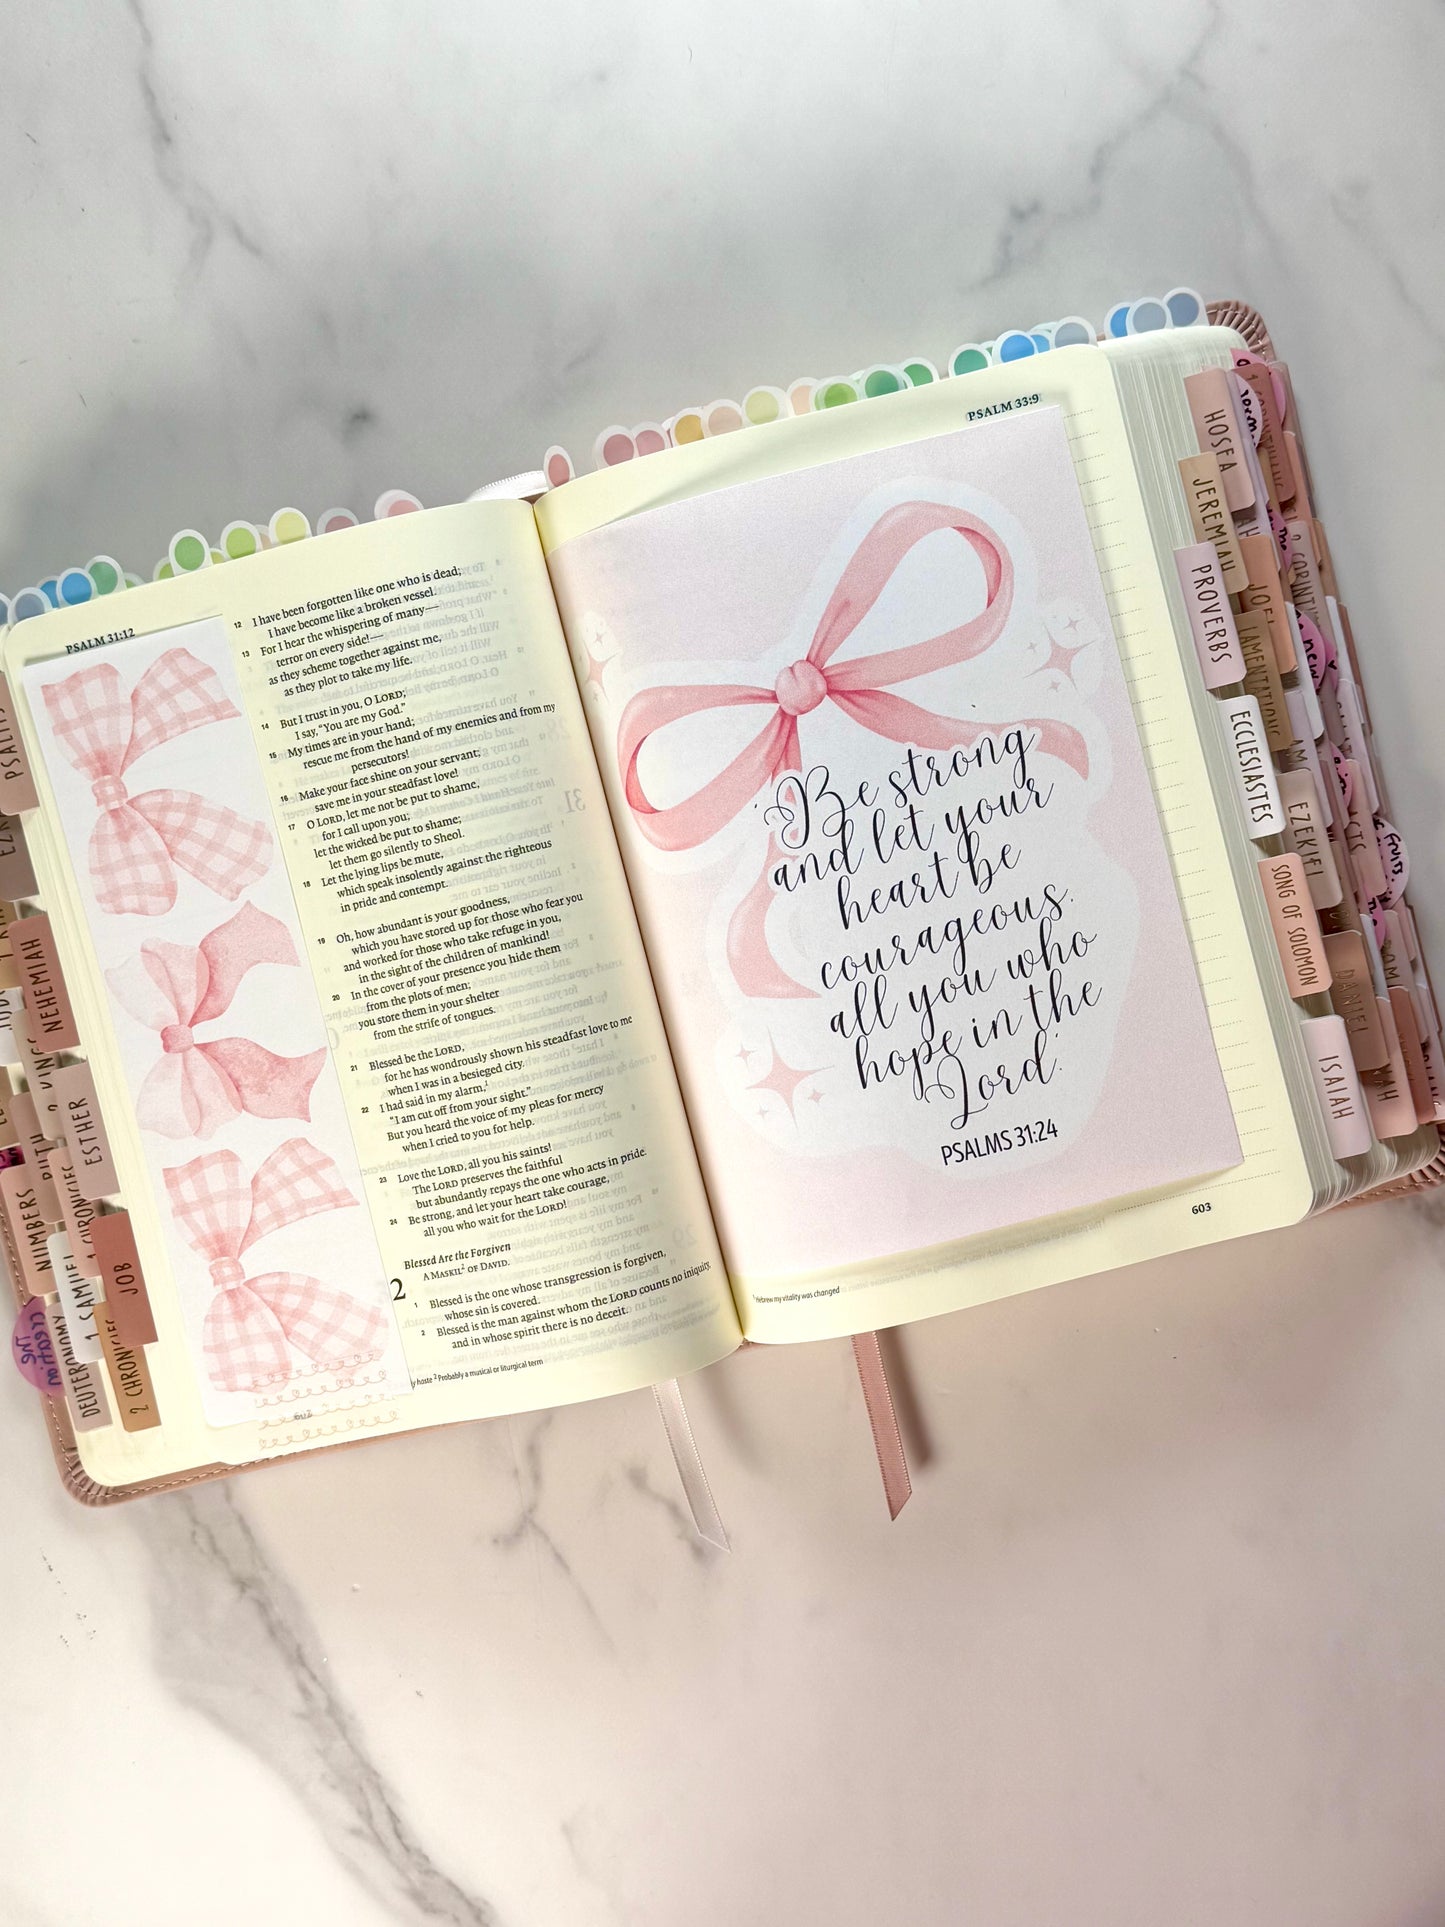 PSALM 31:12
12 I have been forgotten like one who is dead;
I have become like a broken vessel.
13 For I hear the whispering of many—
terror on every side!—
as they scheme together against me,
as they plot to take my life.
14 But I trust in you, O LORD;
I say, "You are my God."
15 My times are in your hand;
rescue me from the hand of my enemies and from my
persecutors!
16 Make your face shine on your servant;
save me in your steadfast love!
17 O LORD, let me not be put to shame,
for I call upon you;
let the wicked be put to shame;
let them go silently to Sheol.
18 Let the lying lips be mute,
which speak insolently against the righteous
in pride and contempt.
19 Oh, how abundant is your goodness,
which you have stored up for those who fear you
and worked for those who take refuge in you,
in the sight of the children of mankind!
20 In the cover of your presence you hide them
from the plots of men;
you store them in your shelter
from the strife of tongues.
21 Blessed be the LORD,
for he has wondrously shown his steadfast love to me
when I was in a besieged city.
22 I had said in my alarm,1
"I am cut off from your sight."
But you heard the voice of my pleas for mercy
when I cried to you for help.
23 Love the LORD, all you his saints!
The LORD preserves the faithful
but abundantly repays the one who acts in pride.
24 Be strong, and let your heart take courage,
all you who wait for the LORD!
Blessed Are the Forgiven
A MASKIL2 OF DAVID.
2
1 Blessed is the one whose transgression is forgiven,
whose sin is covered.
2 Blessed is the man against whom the LORD counts no iniquity,
and in whose spirit there is no deceit.
haste 2 Probably a musical or liturgical term
PSALM 33:9
Be strong
and let your
heart be
courageous.
all you who
hope in the
Lord
PSALMS 31:24
603
1 Hebrew my vitality was changed
PSALMS
NEHEMIAH
ESTHER
NUMBERS
RUTH
1 SAMUEL
JOB
The
creation
DEUTERONOMY
2 CHRONICLES
HOSEA
JEREMIAH
PROVERBS
JOEL
LAMENTATIONS
ECCLESIASTES
EZEKIEL
SONG OF SOLOMON
DANIEL
ISAIAH
ACTS
fruits.
new